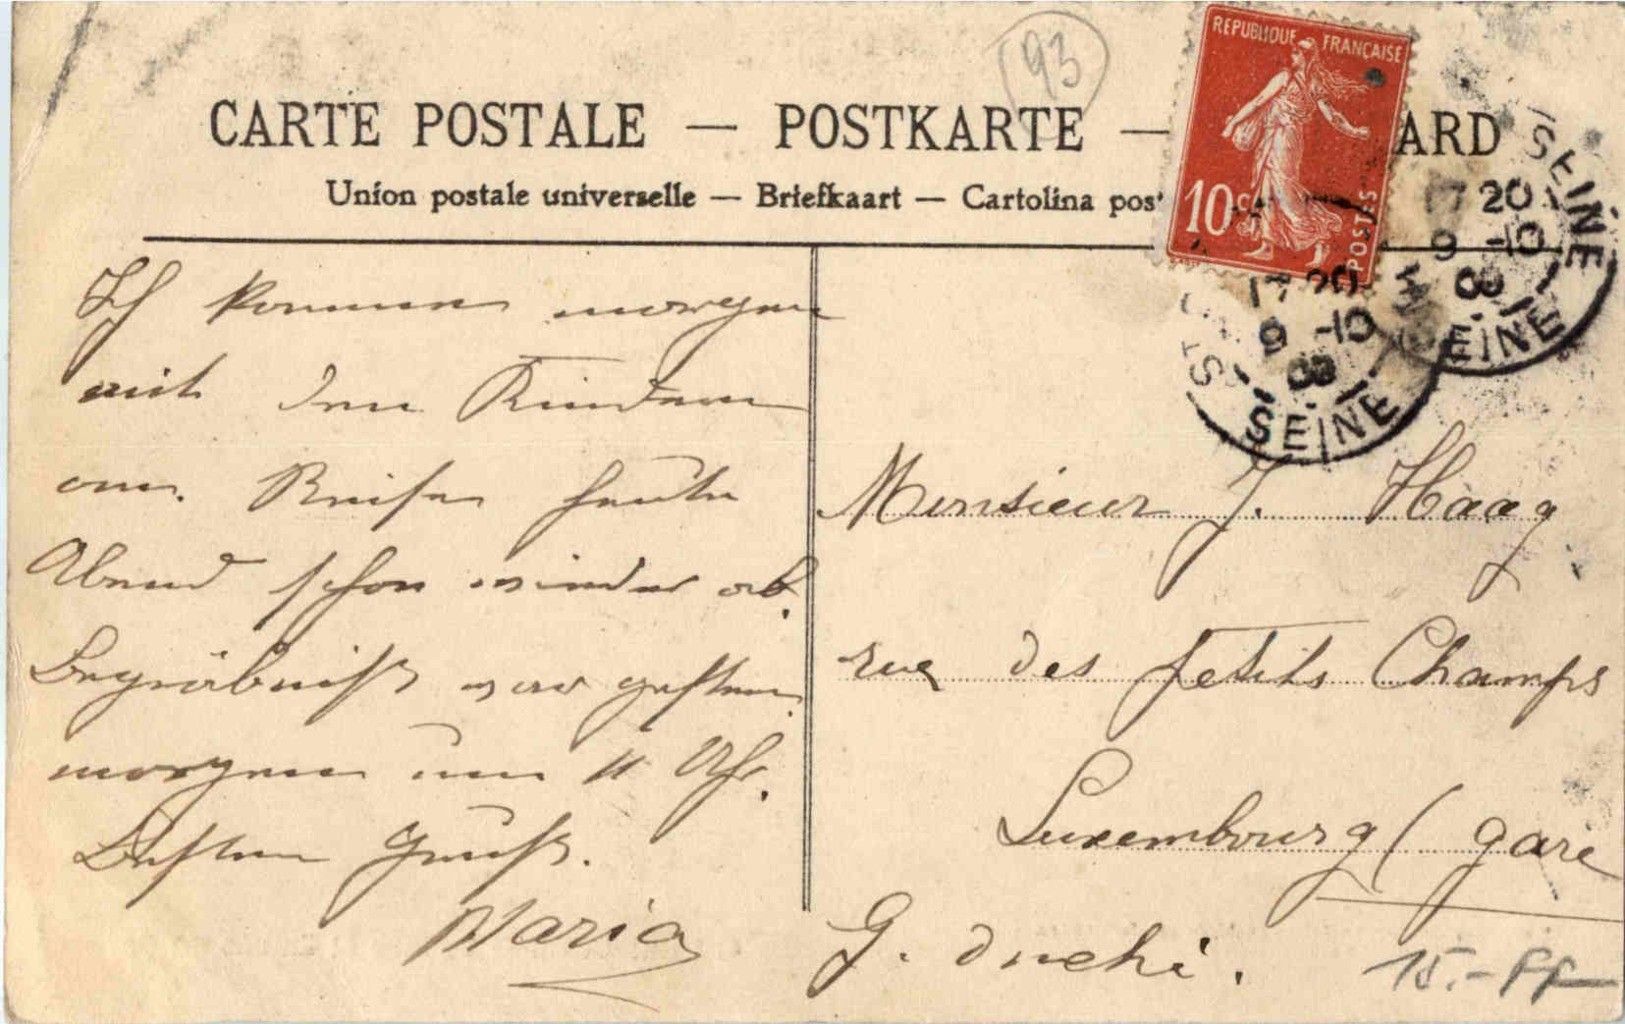 93
CARTE POSTALE — POSTKARTE — ARD
Union postale universelle — Briefkaart — Cartolina post
REPUBLIQUE FRANÇAISE
10 c
POSTES
17 20
9 -10
08
SEINE
SEINE
17 20
9 -10
08
SEINE
Ich komme morgen
mit den Kindern
Reise heute
Abend schon wieder ab.
Begräbniß war gestern
morgen um 11 Uhr.
Besten Gruß.
Maria
Monsieur J. Haag
rue des petits Champs
Luxembourg (gare
G. duché.
15.- FF